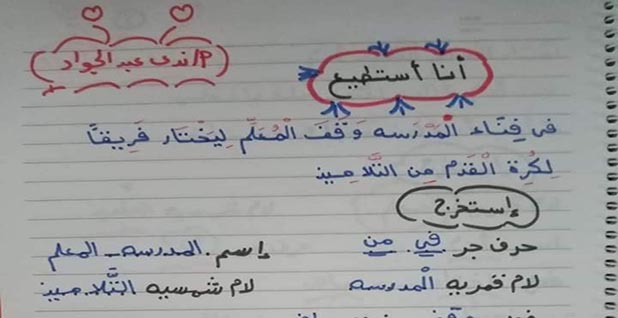 P/ندى عبد الجواد
أنا أستطيع
فى فِنَاء الْمَدْرَسه وَقَفَ الْمُعَلِّم لِيَخْتَار فَرِيقاً
لِكُرة الْقَدَم مِن التَّلاميذ
إستخرج
حرف جر في. من إسم. المدرسه - المعلم
لام قمريه الْمدرسه لام شمسيه التَّلاميذ